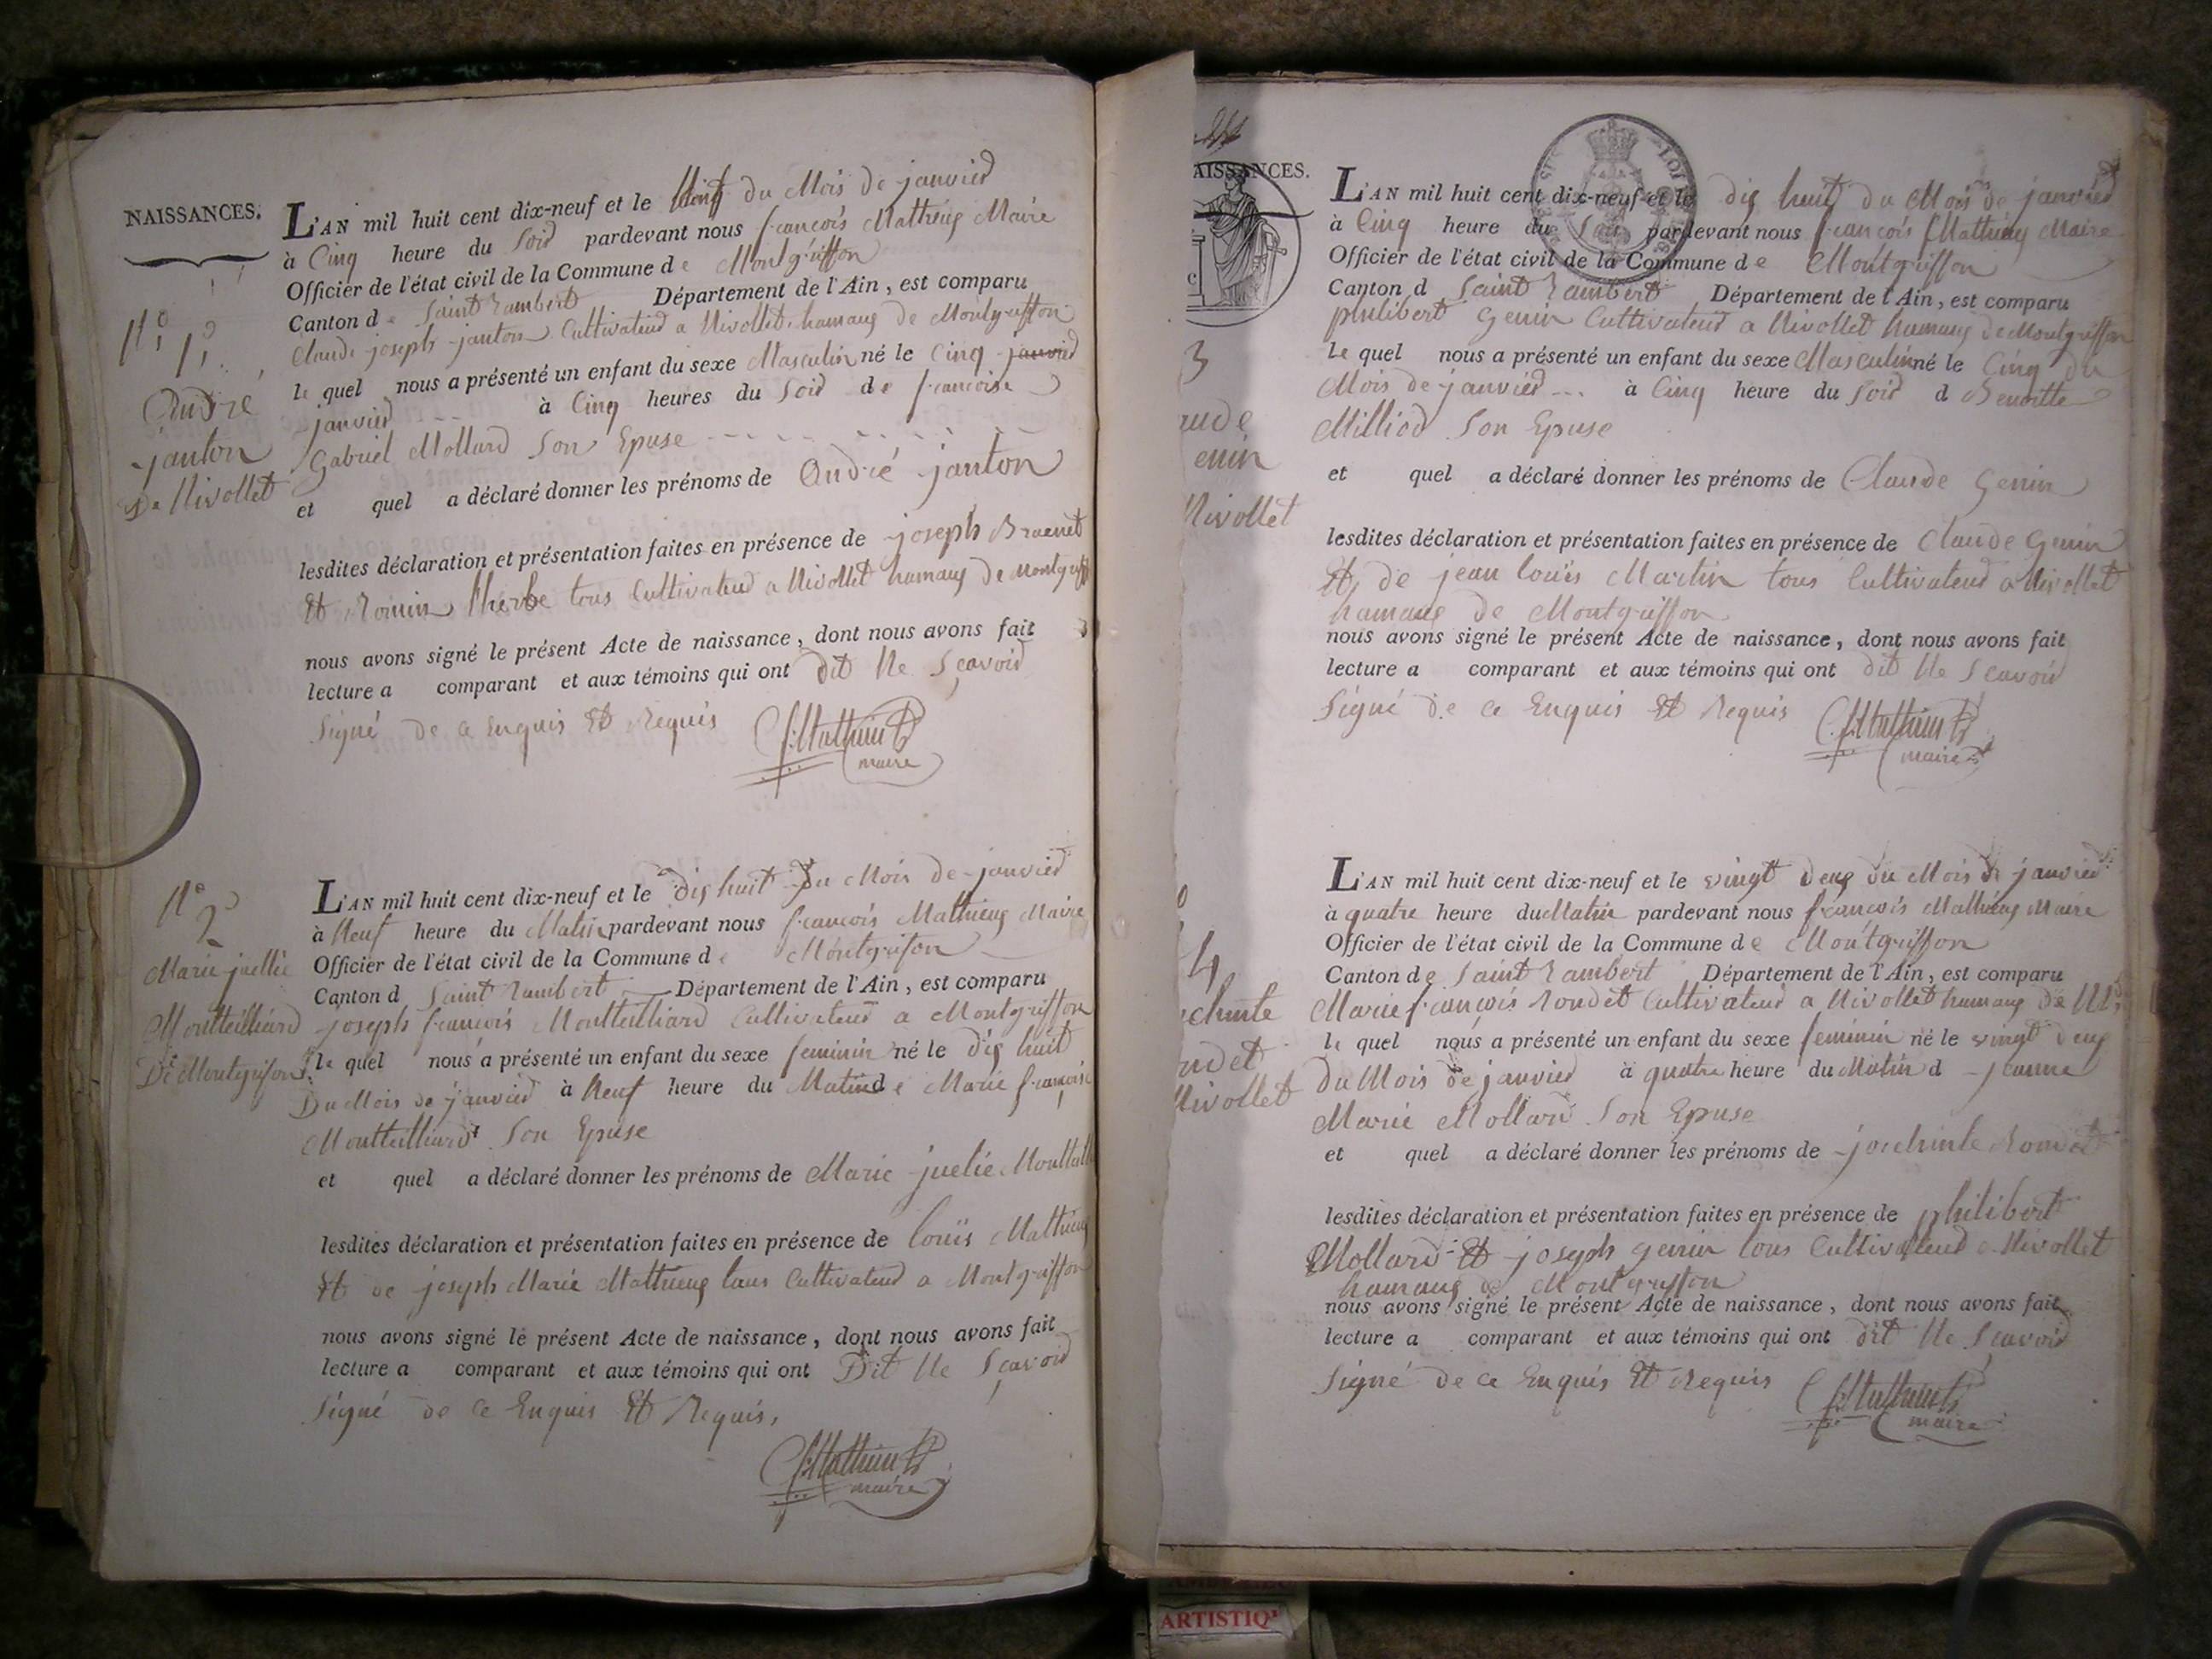 NAISSANCES.
L'AN mil huit cent dix-neuf et le du Mois de janvier
à Cinq heure du Soir pardevant nous françois Mathieux Maire
Officier de l'état civil de la Commune de Montgriffon
Canton de Saint Rambert Département de l'Ain, est comparu
Claude joseph janton Cultivateur a Nivollet hamaux de Montgriffon
le quel nous a présenté un enfant du sexe Masculin né le Cinq janvier
janvier à Cinq heures du Soir de françoise
Gabriel Mollard Son Epuse
et quel a déclaré donner les prénoms de André janton
lesdites déclaration et présentation faites en présence de joseph
Et Romin tous Cultivateur a Nivollet hamaux de Montgriff
nous avons signé le présent Acte de naissance, dont nous avons fait
lecture a comparant et aux témoins qui ont dit Ne Sçavoir
Signé de ce Enquis Et Requis
f. Mathieux
maire
N° 1.
André
janton
De Nivollet
L'AN mil huit cent dix-neuf et le dix huit Du Mois de janvier
à Neuf heure du Matin pardevant nous françois Mathieux Maire
Officier de l'état civil de la Commune de Montgrifon
Canton d Saint Rambert Département de l'Ain, est comparu
joseph françois Montteilliard Cultivateur a Montgriffon
le quel nous a présenté un enfant du sexe feminin né le dix huit
Du Mois de janvier à Neuf heure du Matin de Marie françoise
Montteilliard Son Epuse
et quel a déclaré donner les prénoms de Marie juelie
lesdites déclaration et présentation faites en présence de louis Mathieux
Et de joseph Marie Mathieux tous Cultivateur a Montgriffon
nous avons signé le présent Acte de naissance, dont nous avons fait
lecture a comparant et aux témoins qui ont Dit Ne Sçavoir
Signé de ce Enquis Et Requis,
f. Mathieux
maire
N° 2
Marie juellie
Montteilliard
De Montgrifon
AISSANCES.
L'AN mil huit cent dix-neuf et le dix huit du Mois de janvier
à Cinq heure du Soir pardevant nous françois Mathieux Maire
Officier de l'état civil de la Commune de Montgriffon
Canton d Saint Rambert Département de l'Ain, est comparu
philibert Genin Cultivateur a Nivollet hamaux de Montgriffon
le quel nous a présenté un enfant du sexe Masculin né le Cinq du
Mois de janvier à Cinq heure du Soir d Benoitte
Milliod Son Epuse
et quel a déclaré donner les prénoms de Claude Genin
lesdites déclaration et présentation faites en présence de Claude Genin
Et de jean louis Martin tous Cultivateur a Nivollet
hamaux de Montgriffon
nous avons signé le présent Acte de naissance, dont nous avons fait
lecture a comparant et aux témoins qui ont dit Ne Scavoir
Signé de ce Enquis Et Requis
f. Mathieux
maire
3
aude
enin
Nivollet
L'AN mil huit cent dix-neuf et le vingt deux du Mois de janvier
à quatre heure du Matin pardevant nous françois Mathieux Maire
Officier de l'état civil de la Commune de Montgriffon
Canton de Saint Rambert Département de l'Ain, est comparu
Marie françois Rondet Cultivateur a Nivollet hamaux de
le quel nous a présenté un enfant du sexe feminin né le vingt deux
Du Mois de janvier à quatre heure du Matin d jeanne
Marie Mollard Son Epuse
et quel a déclaré donner les prénoms de joschinte Rondet
lesdites déclaration et présentation faites en présence de philibert
Mollard Et joseph Genin tous Cultivateur a Nivollet
hamaux de Montgriffon
nous avons signé le présent Acte de naissance, dont nous avons fait
lecture a comparant et aux témoins qui ont dit Ne Scavoir
Signé de ce Enquis Et Requis
f. Mathieux
maire
4
schinte
ndet
Nivollet
ARTISTIQ